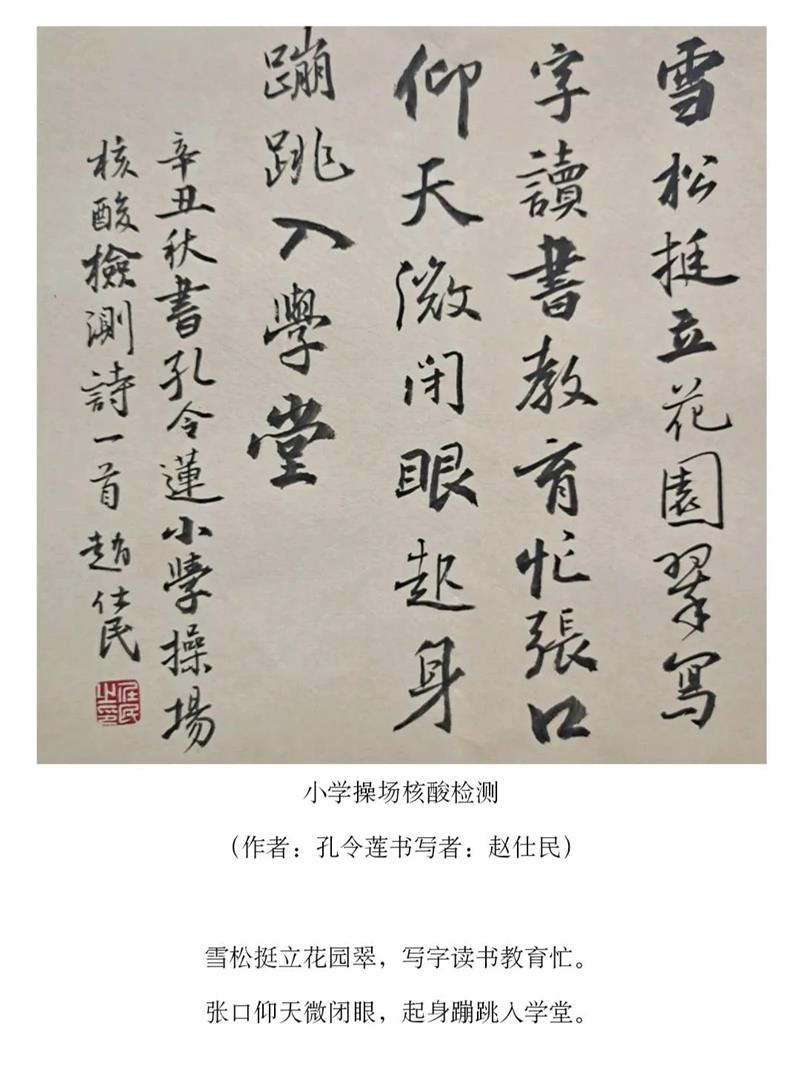 雪松挺立花園翠寫
字讀書教育忙張口
仰天微闭眼起身
蹦跳入學堂
辛丑秋書孔令蓮小學操場
核酸檢測詩一首趙仕民
小学操场核酸检测
（作者：孔令莲书写者：赵仕民）
雪松挺立花园翠，写字读书教育忙。
张口仰天微闭眼，起身蹦跳入学堂。